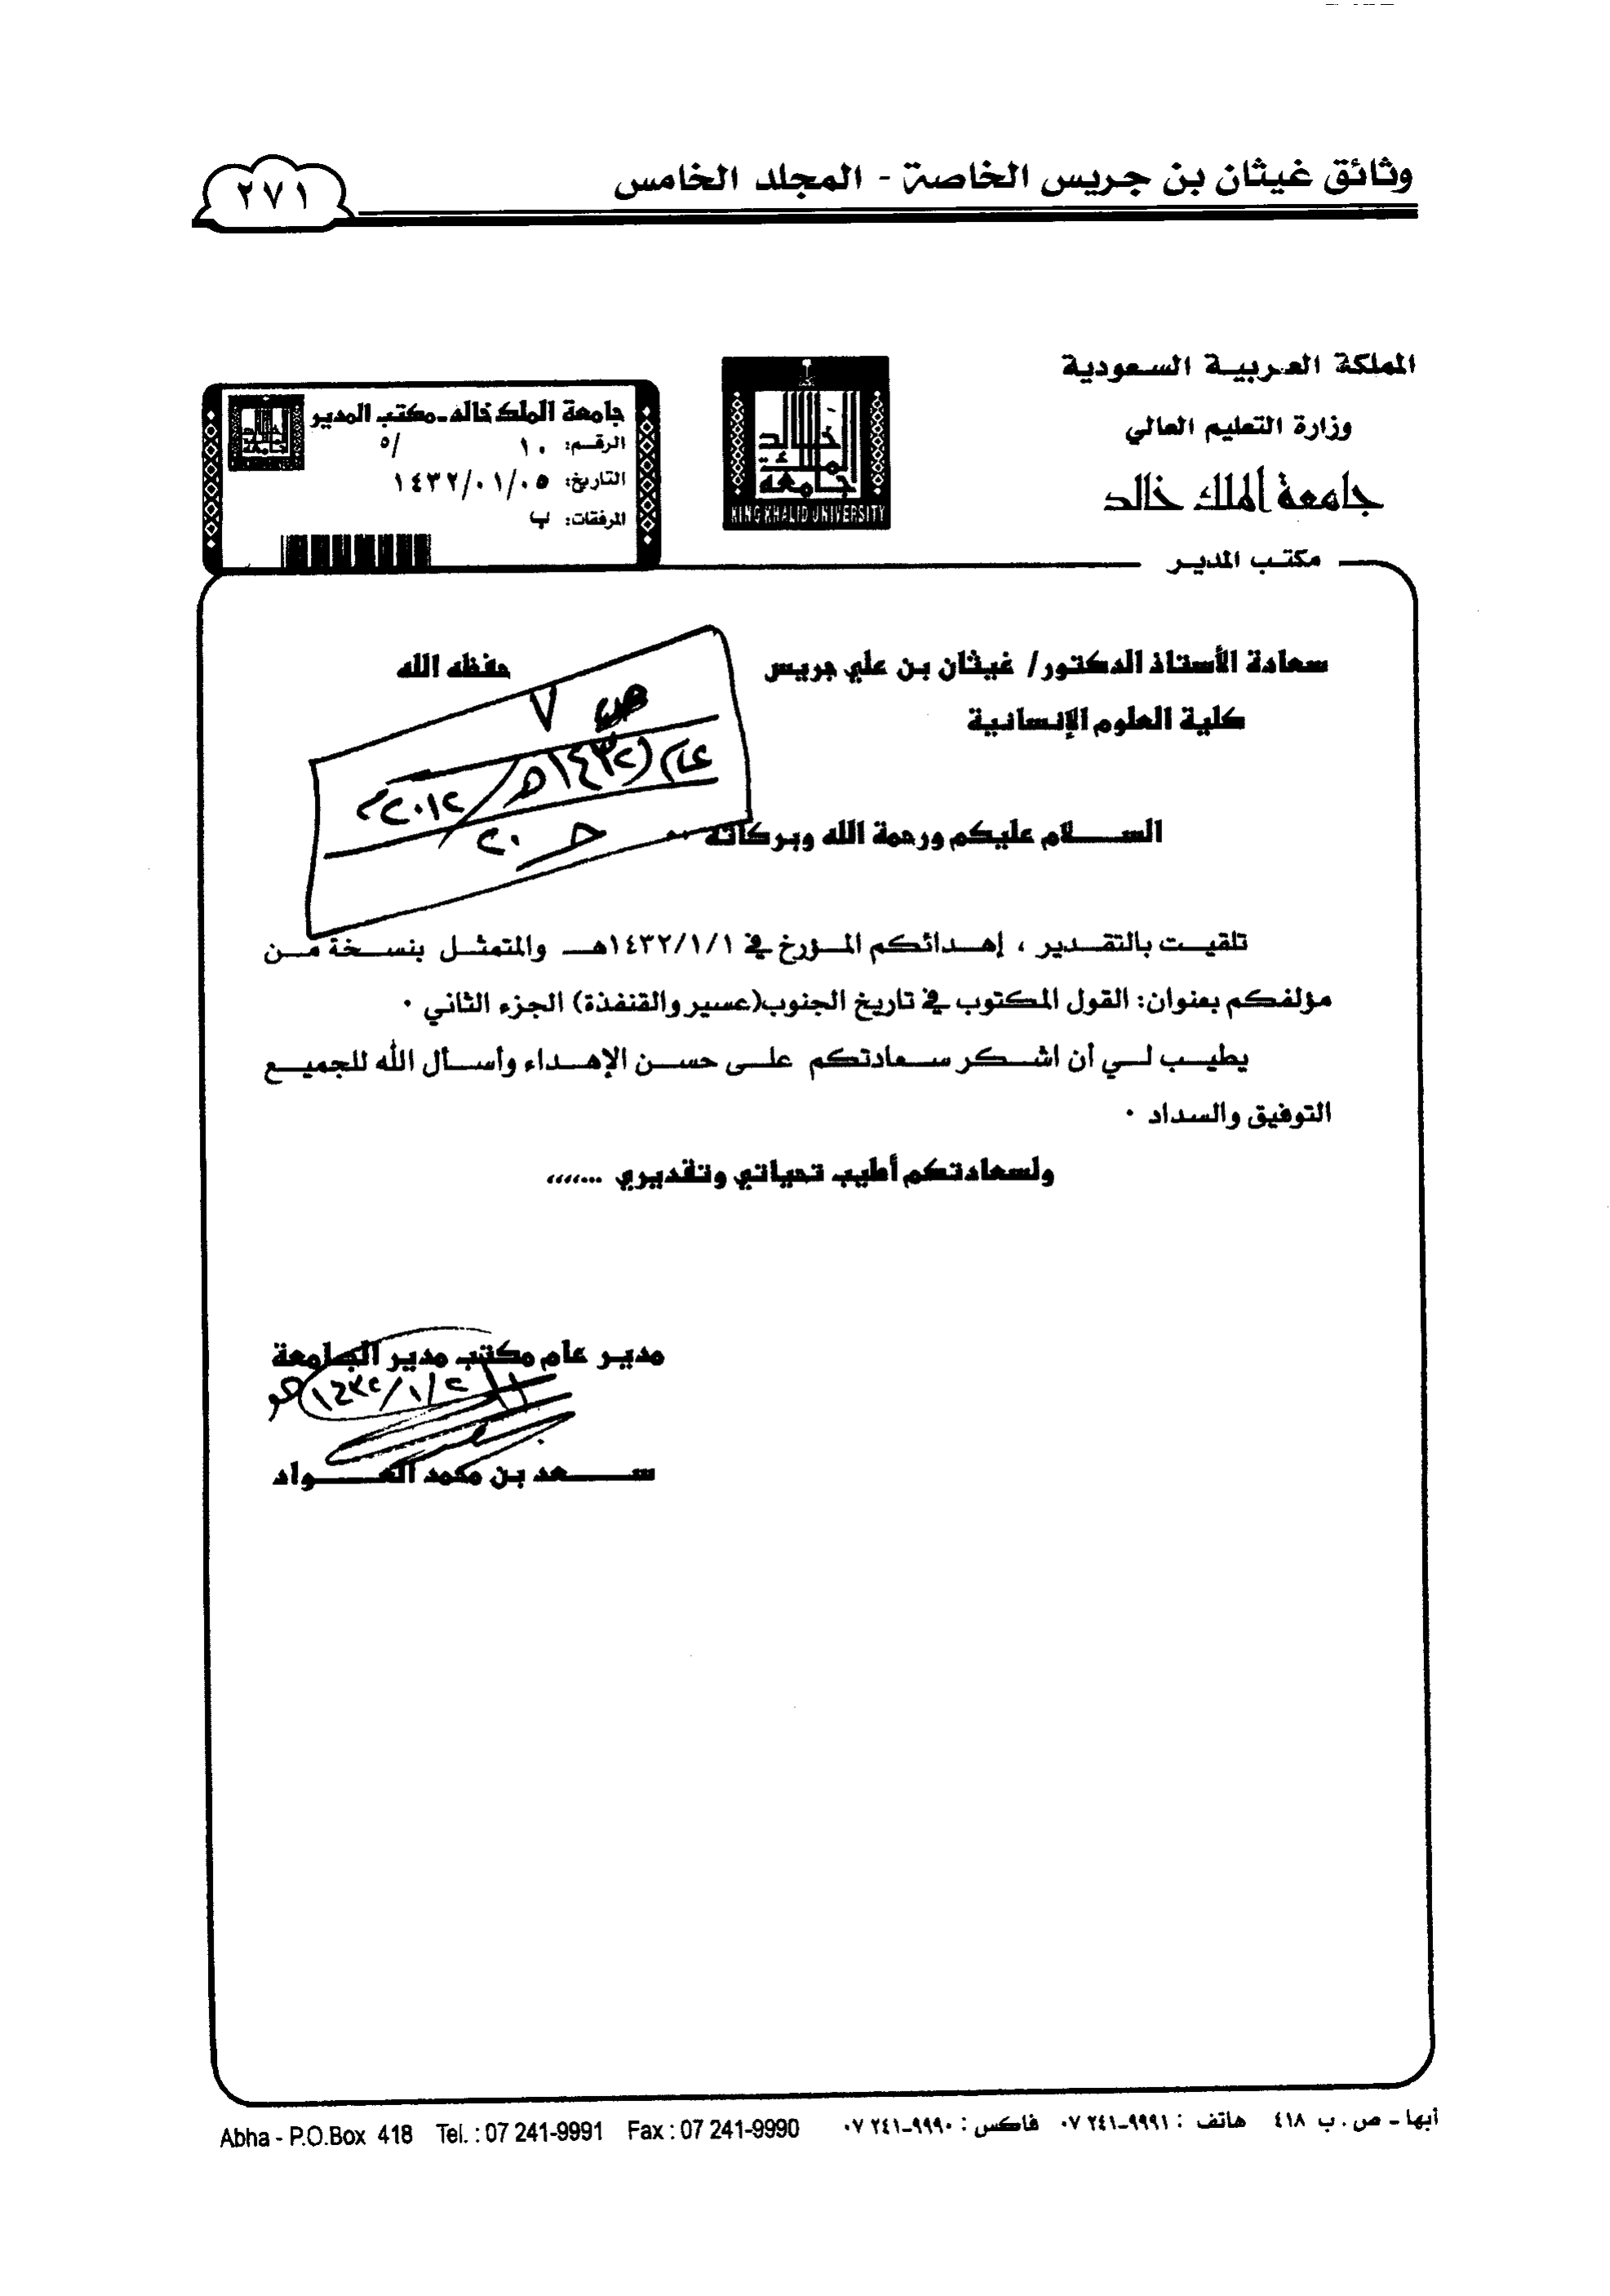 وثائق غيثان بن جريس الخاصة - المجلد الخامس
٢٧١
المملكة العربية السعودية
وزارة التعليم العالي
جامعة الملك خالد
مكتب المدير
KING KHALID UNIVERSITY
جامعة الملك خالد-مكتب المدير
الرقم: ١٠ /٥
التاريخ: ١٤٣٢/٠١/٠٥
المرفقات: ب
سعادة الأستاذ الدكتور/ غيثان بن علي جريس حفظه الله
كلية العلوم الإنسانية
ص ٧
عام (١٤٣٢هـ/٢٠١٢م)
ح ٢٠
الســـلام عليكم ورحمة الله وبركاته ..
تلقيت بالتقدير ، إهدائكم المؤرخ في ١٤٣٢/١/١هـ والمتمثل بنسخة من
مؤلفكم بعنوان: القول المكتوب في تاريخ الجنوب(عسير والقنفذة) الجزء الثاني .
يطيب لي أن اشكر سعادتكم على حسن الإهداء وأسأل الله للجميع
التوفيق والسداد .
ولسعادتكم أطيب تحياتي وتقديري ...،،،،
مدير عام مكتب مدير الجامعة
سعد بن محمد العواد
أبها - ص . ب ٤١٨ هاتف : ٩٩٩١-٢٤١ ٠٧ فاكس : ٩٩٩٠-٢٤١ ٠٧
Abha - P.O.Box 418 Tel. : 07 241-9991 Fax : 07 241-9990